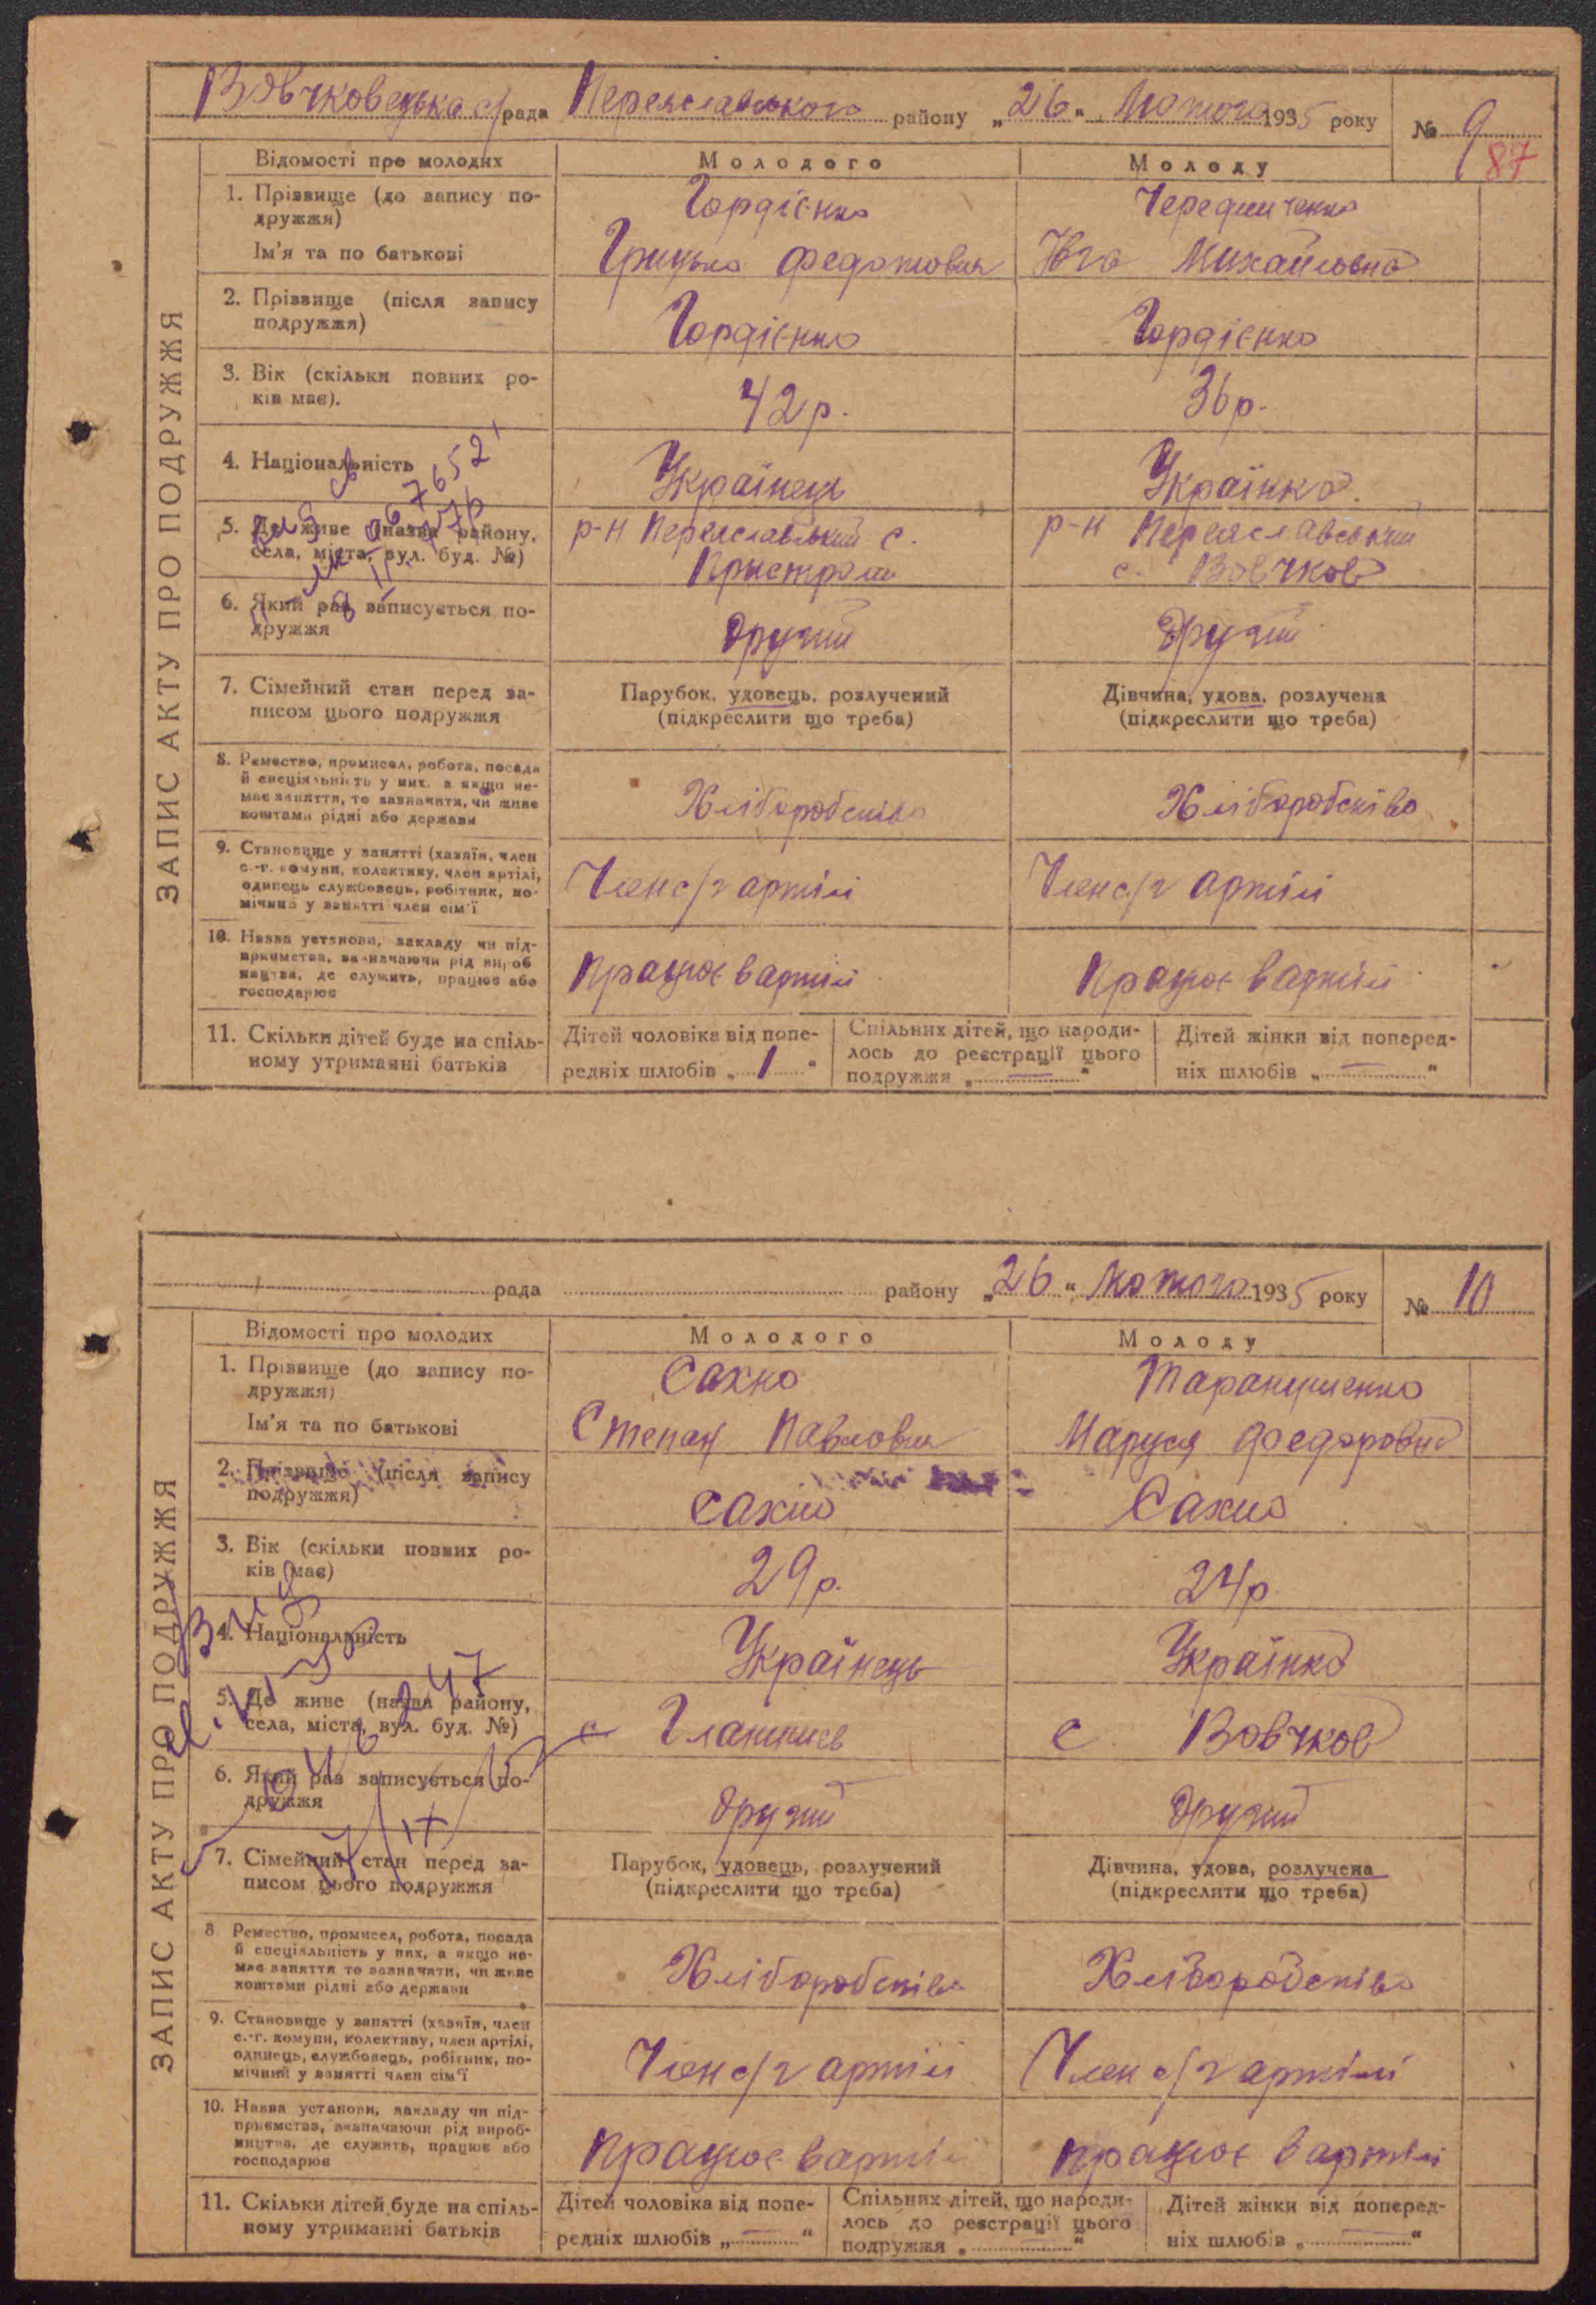 Вовчковська с/рада Переяславського району „26“ Лютого 1935 року № 9
87
ЗАПИС АКТУ ПРО ПОДРУЖЖЯ
Відомості про молодих Молодого Молоду
1. Прізвище (до запису по-
дружжя) Гордієнко Чередниченко
Ім'я та по батькові Грицько Федотович Юга Михайловна
2. Прізвище (після запису
подружжя) Гордієнко Гордієнко
3. Вік (скільки повних ро-
ків має). 42 р. 36 р.
4. Національність Українець Українка
5. Де живе (назва району, р-н Переяславський с. р-н Переяславський
села, міста, вул. буд. №) Пристроми с. Вовчков
6. Який раз записується по-
дружжя другий другий
7. Сімейний стан перед за- Парубок, удовець, розлучений Дівчина, удова, розлучена
писом цього подружжя (підкреслити що треба) (підкреслити що треба)
8. Ремество, промисел, робота, посада
й спеціяльність у них, а якщо не-
має заняття, то зазначити, чи живе Хліборобство Хліборобство
коштами рідні або держави
9. Становище у занятті (хазяїн, член
с.-г. комуни, колективу, член артілі, Член с/г артілі Член с/г артілі
одинець службовець, робітник, по-
мічний у занятті член сім'ї
10. Назва установи, закладу чи під-
приємства, зазначаючи рід вироб Працює в артілі Працює в артілі
ництва, де служить, працює або
господарює
11. Скільки дітей буде на спіль- Дітей чоловіка від попе- Спільних дітей, що народи- Дітей жінки від поперед-
ному утриманні батьків редніх шлюбів „1“ лось до реєстрації цього ніх шлюбів „—“
подружжя „—“
рада району „26“ Лютого 1935 року № 10
ЗАПИС АКТУ ПРО ПОДРУЖЖЯ
Відомості про молодих Молодого Молоду
1. Прізвище (до запису по- Сахно Таранущенко
дружжя)
Ім'я та по батькові Степан Павлович Маруся Федоровна
2. Прізвище (після запису
подружжя) Сахно Сахно
3. Вік (скільки повних ро-
ків має) 29 р. 24 р.
4. Національність Українець Українка
5. Де живе (назва району,
села, міста, вул. буд. №) с Гланишев с. Вовчков
6. Який раз записується по-
дружжя другий другий
7. Сімейний стан перед за- Парубок, удовець, розлучений Дівчина, удова, розлучена
писом цього подружжя (підкреслити що треба) (підкреслити що треба)
8 Ремество, промисел, робота, посада
й спеціяльність у них, а якщо не-
має заняття то зазначити, чи живе Хліборобство Хліборобство
коштами рідні або держави
9. Становище у занятті (хазяїн, член
с.-г. комуни, колективу, член артілі,
одинець, службовець, робітник, по- Член с/г артілі Член с/г артілі
мічний у занятті член сім'ї
10. Назва установи, закладу чи під-
приємства, зазначаючи рід вироб-
ництва, де служить, працює або Працює в артілі Працює в артілі
господарює
11. Скільки дітей буде на спіль- Дітей чоловіка від попе- Спільних дітей, що народи- Дітей жінки від поперед-
ному утриманні батьків редніх шлюбів „—“ лось до реєстрації цього ніх шлюбів „—“
подружжя „—“